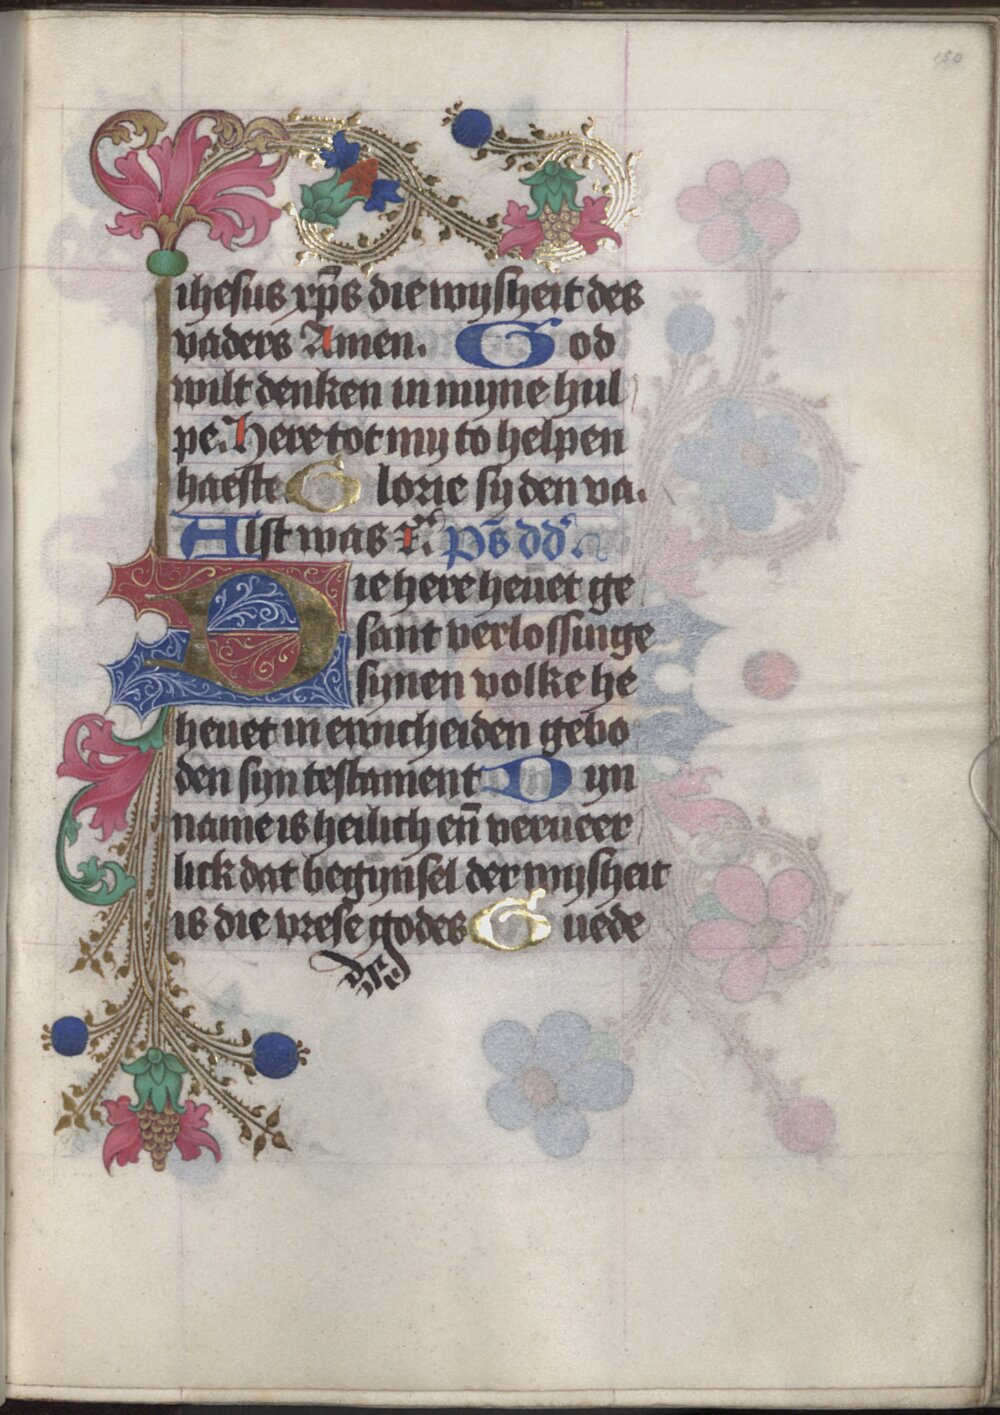 150
ihesus xp̄s die wijsheit des
vaders Amen. God
wilt denken in mijne hul
pe. Here tot mij to helpen
haeste Glorie sij den va.
Alst was
Die here heuet ge
sant verlossinge
sijnen volke he
heuet in ewicheiden gebo
den sijn testament Dijn
name is heilich en̄ verueer
lick dat begijnsel der wijsheit
is die vrese godes Guede